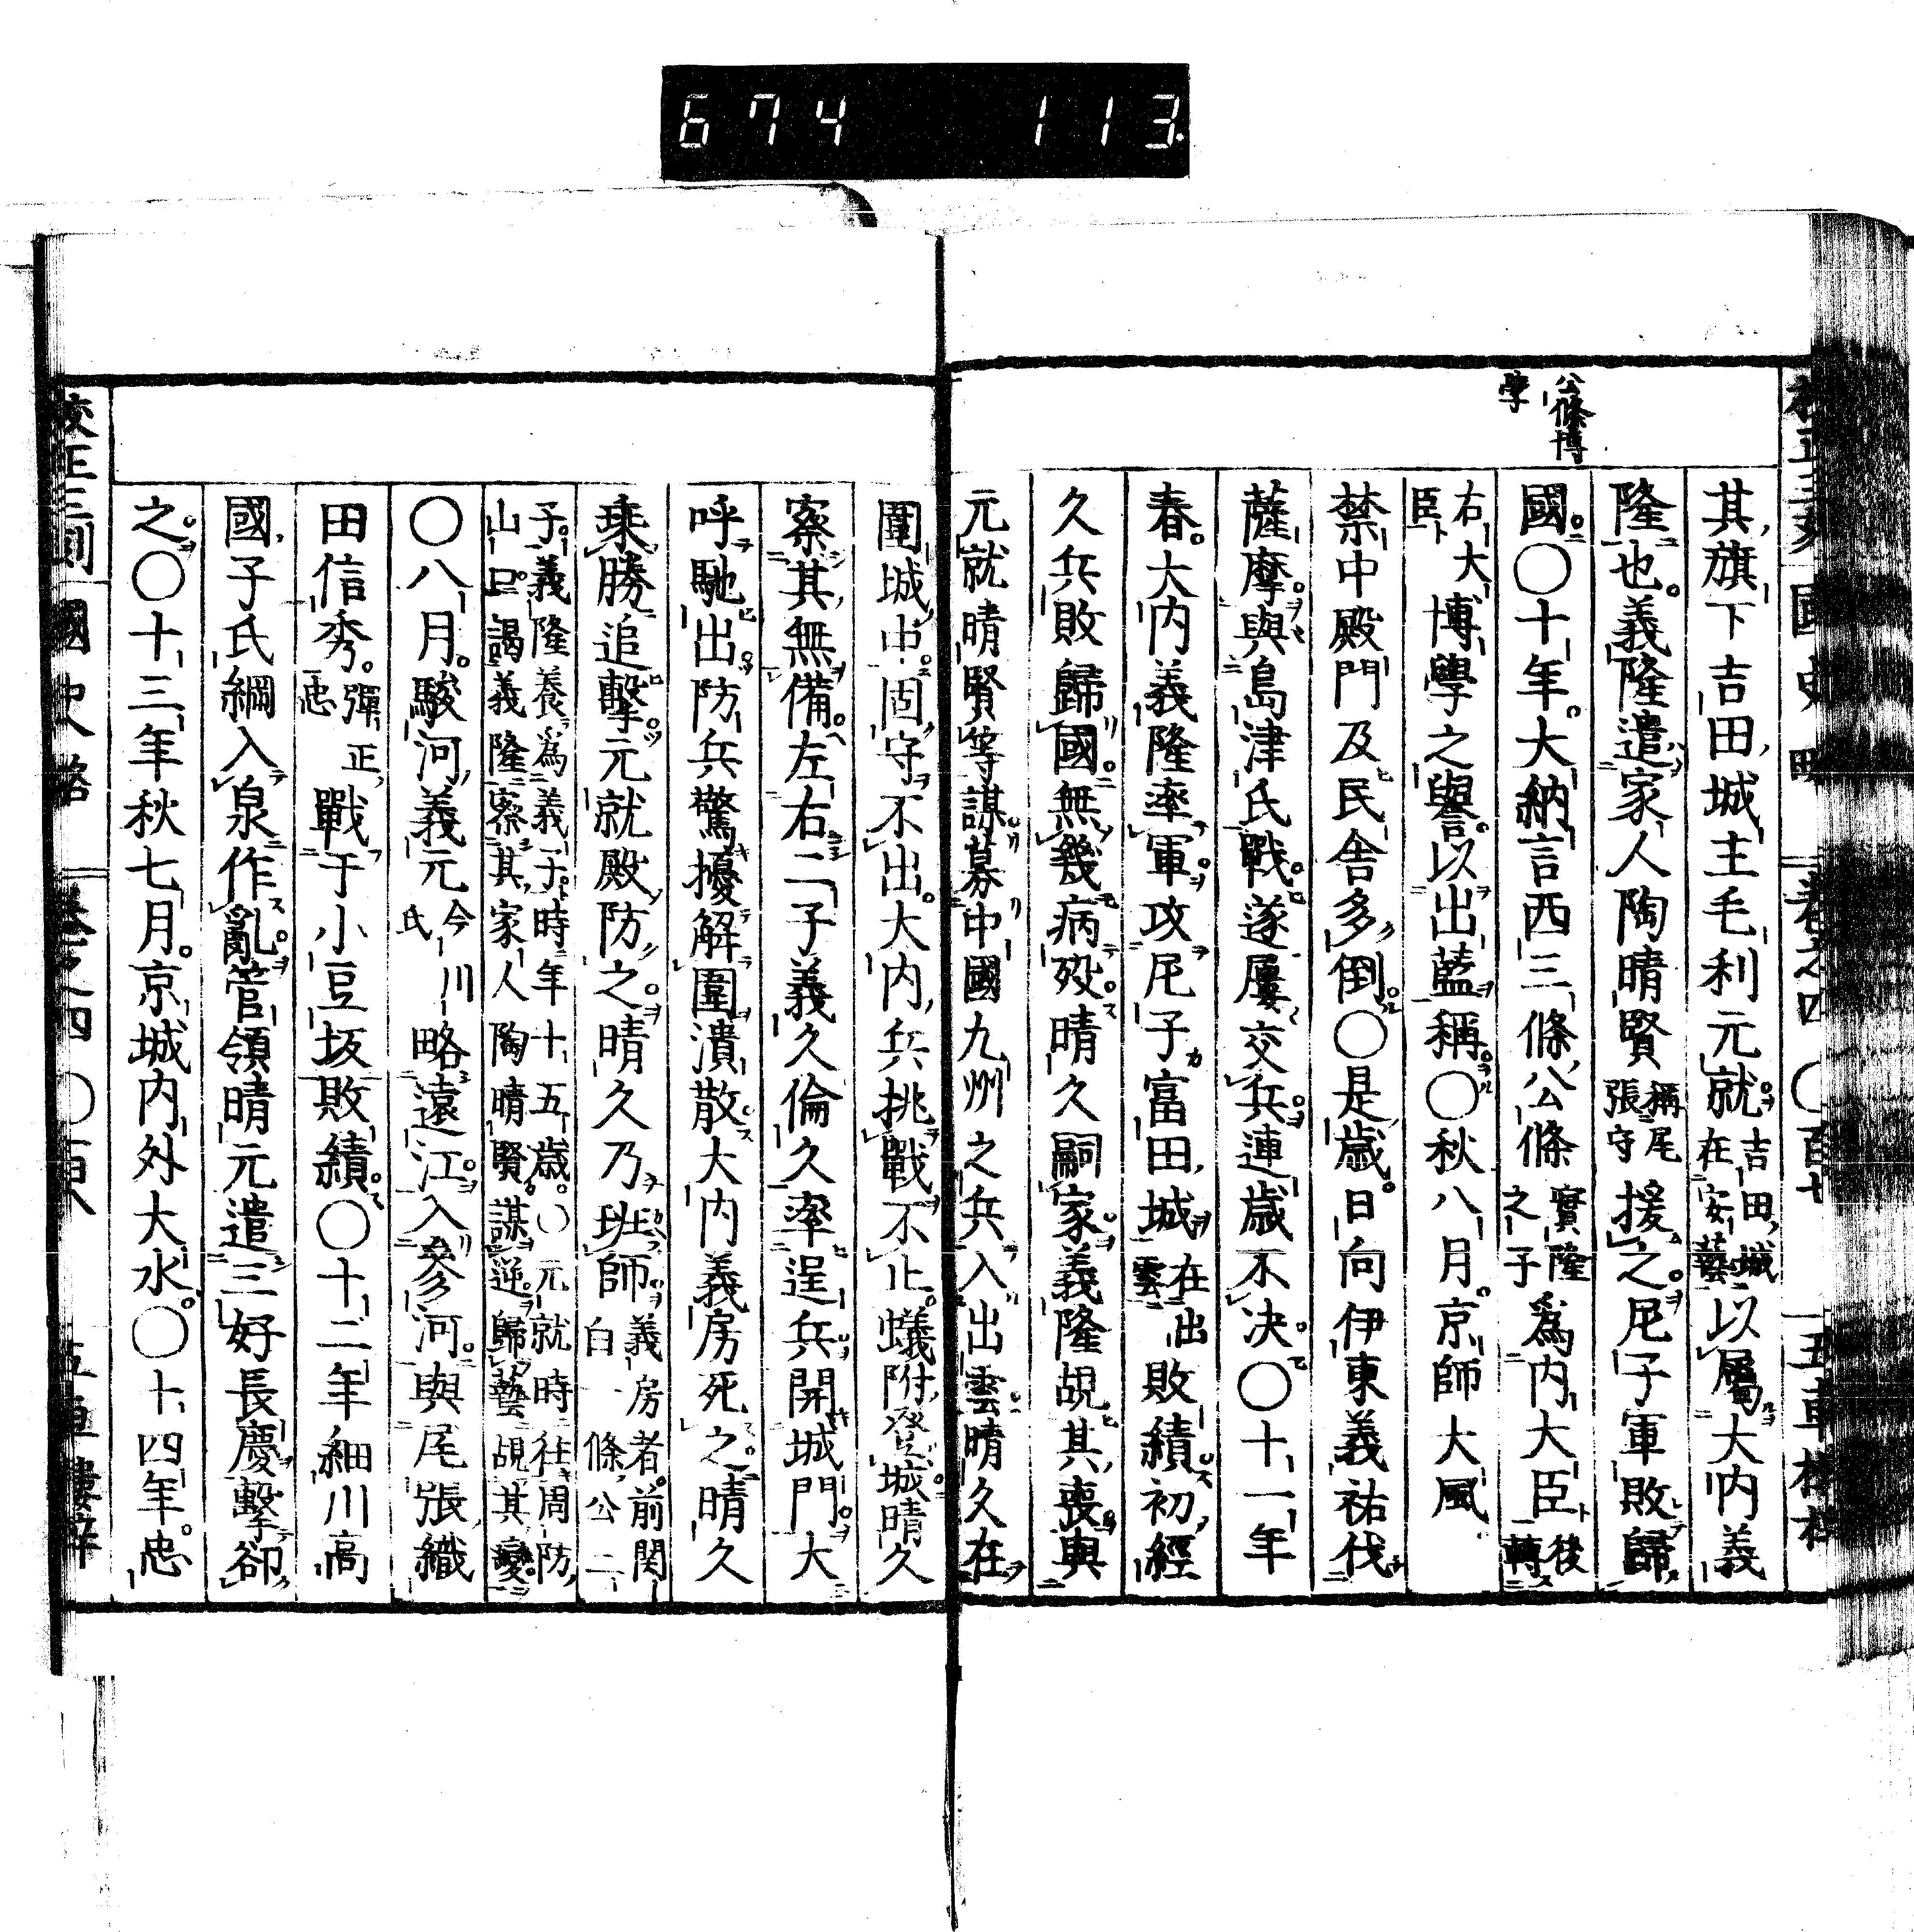 674 113
公條博
學
其旗下吉田城主毛利元就吉田城在安藝以屬大內義
隆也義隆遣家人陶晴賢稱尾張守援之尼子軍敗歸
國〇十年大納言西三條公條實隆之子爲內大臣後轉
右大臣博學之譽以出藍稱〇秋八月京師大風
禁中殿門及民舍多倒〇是歲日向伊東義祐伐
薩摩與島津氏戰遂屢交兵連歲不決〇十一年
春大內義隆率軍攻尼子富田城在出雲敗績初經
久兵敗歸國無幾病歿晴久嗣家義隆覘其喪與
元就晴賢等謀募中國九州之兵入出雲晴久在
圍城中固守不出大內兵挑戰不止蟻附登城晴久
察其無備左右二子義久倫久率逞兵開城門大
呼馳出防兵驚擾解圍潰散大內義房死之晴久
乘勝追擊元就殿防之晴久乃班師義房者前関白一條公二
子義隆養爲義子時年十五歲〇元就時往周防山口謁義隆察其家人陶晴賢謀逆歸藝覘其變
〇八月駿河義元今川氏略遠江入參河與尾張織
田信秀彈正忠戰于小豆坂敗績〇十二年細川高
國子氏綱入泉作亂管領晴元遣三好長慶擊卻
之〇十三年秋七月京城內外大水〇十四年忠
國史略